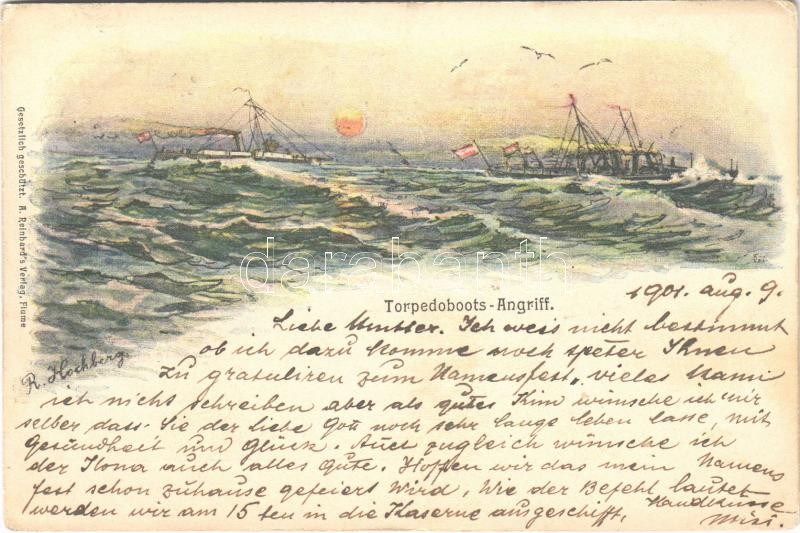 Torpedoboots-Angriff.
Gesetzlich geschützt. A. Reinhard's Verlag, Fiume
R. Hochberg
darabanth
1901. aug. 9.
Liebe Mutter. Ich weis nicht bestimmt
ob ich dazu komme noch speter Ihnen
zu gratuliren zum Namensfest, vieles kann
ich nicht schreiben aber als gutes Kind wünsche ich mir
selber dass Sie der liebe Gott noch sehr lange leben lasse, mit
Gesundheit und Glück. Auch zugleich wünsche ich
der Ilona auch alles Gute. Hoffen wir das mein Namens
fest schon zuhause gefeiert wird, Wie der Befehl lautet
werden wir am 15 ten in die Kaserne ausgeschifft,
Handküsse
Misi.